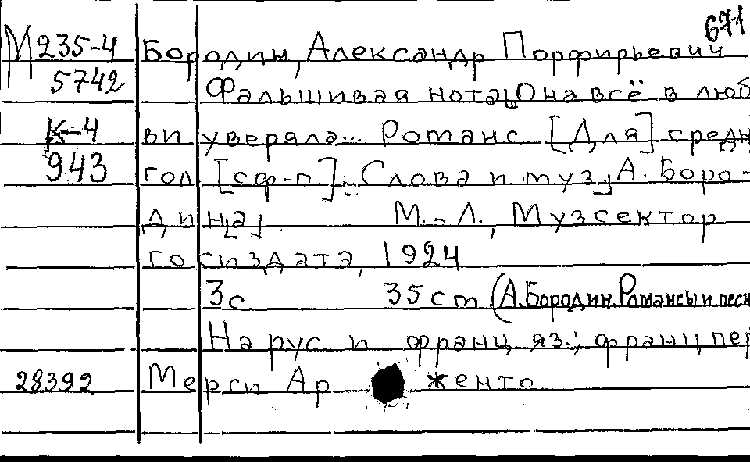 671
М 235-4 Бородин, Александр Порфирьевич
5742 Фальшивая нота[Она всё в люб
К-4 ви уверяла... Романс [Для] средн
943 гол [сф-п]. Слова и муз] А. Боро-
дин[а] М.-Л., Музсектор
госиздата, 1924
3с 35 см (А.Бородин. Романсы и песн
На рус и франц яз.; франц пер
28392 Мерси Ар женто